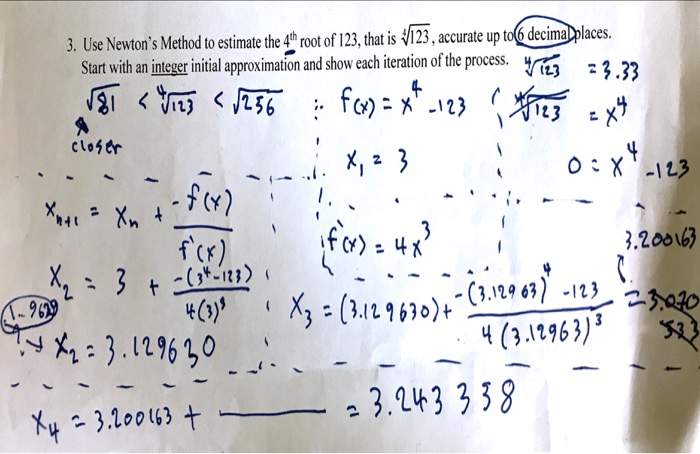 3. Use Newton's Method to estimate the 4th root of 123, that is ∜123, accurate up to 6 decimal places.
Start with an integer initial approximation and show each iteration of the process.
∜123 = 3.33
√81 < ∜123 < √256
closer
∴ f(x) = x⁴ - 123
∜123 = x⁴
x₁ = 3
0 = x⁴ - 123
xₙ₊₁ = xₙ + -f(x) / f'(x)
f'(x) = 4x³
3.200163
x₂ = 3 + -(3⁴-123) / 4(3)³
x₃ = (3.129630) + -(3.12963)⁴ - 123 / 4(3.12963)³
x₂ = 3.129630
x₄ = 3.200163 + ——— = 3.243338